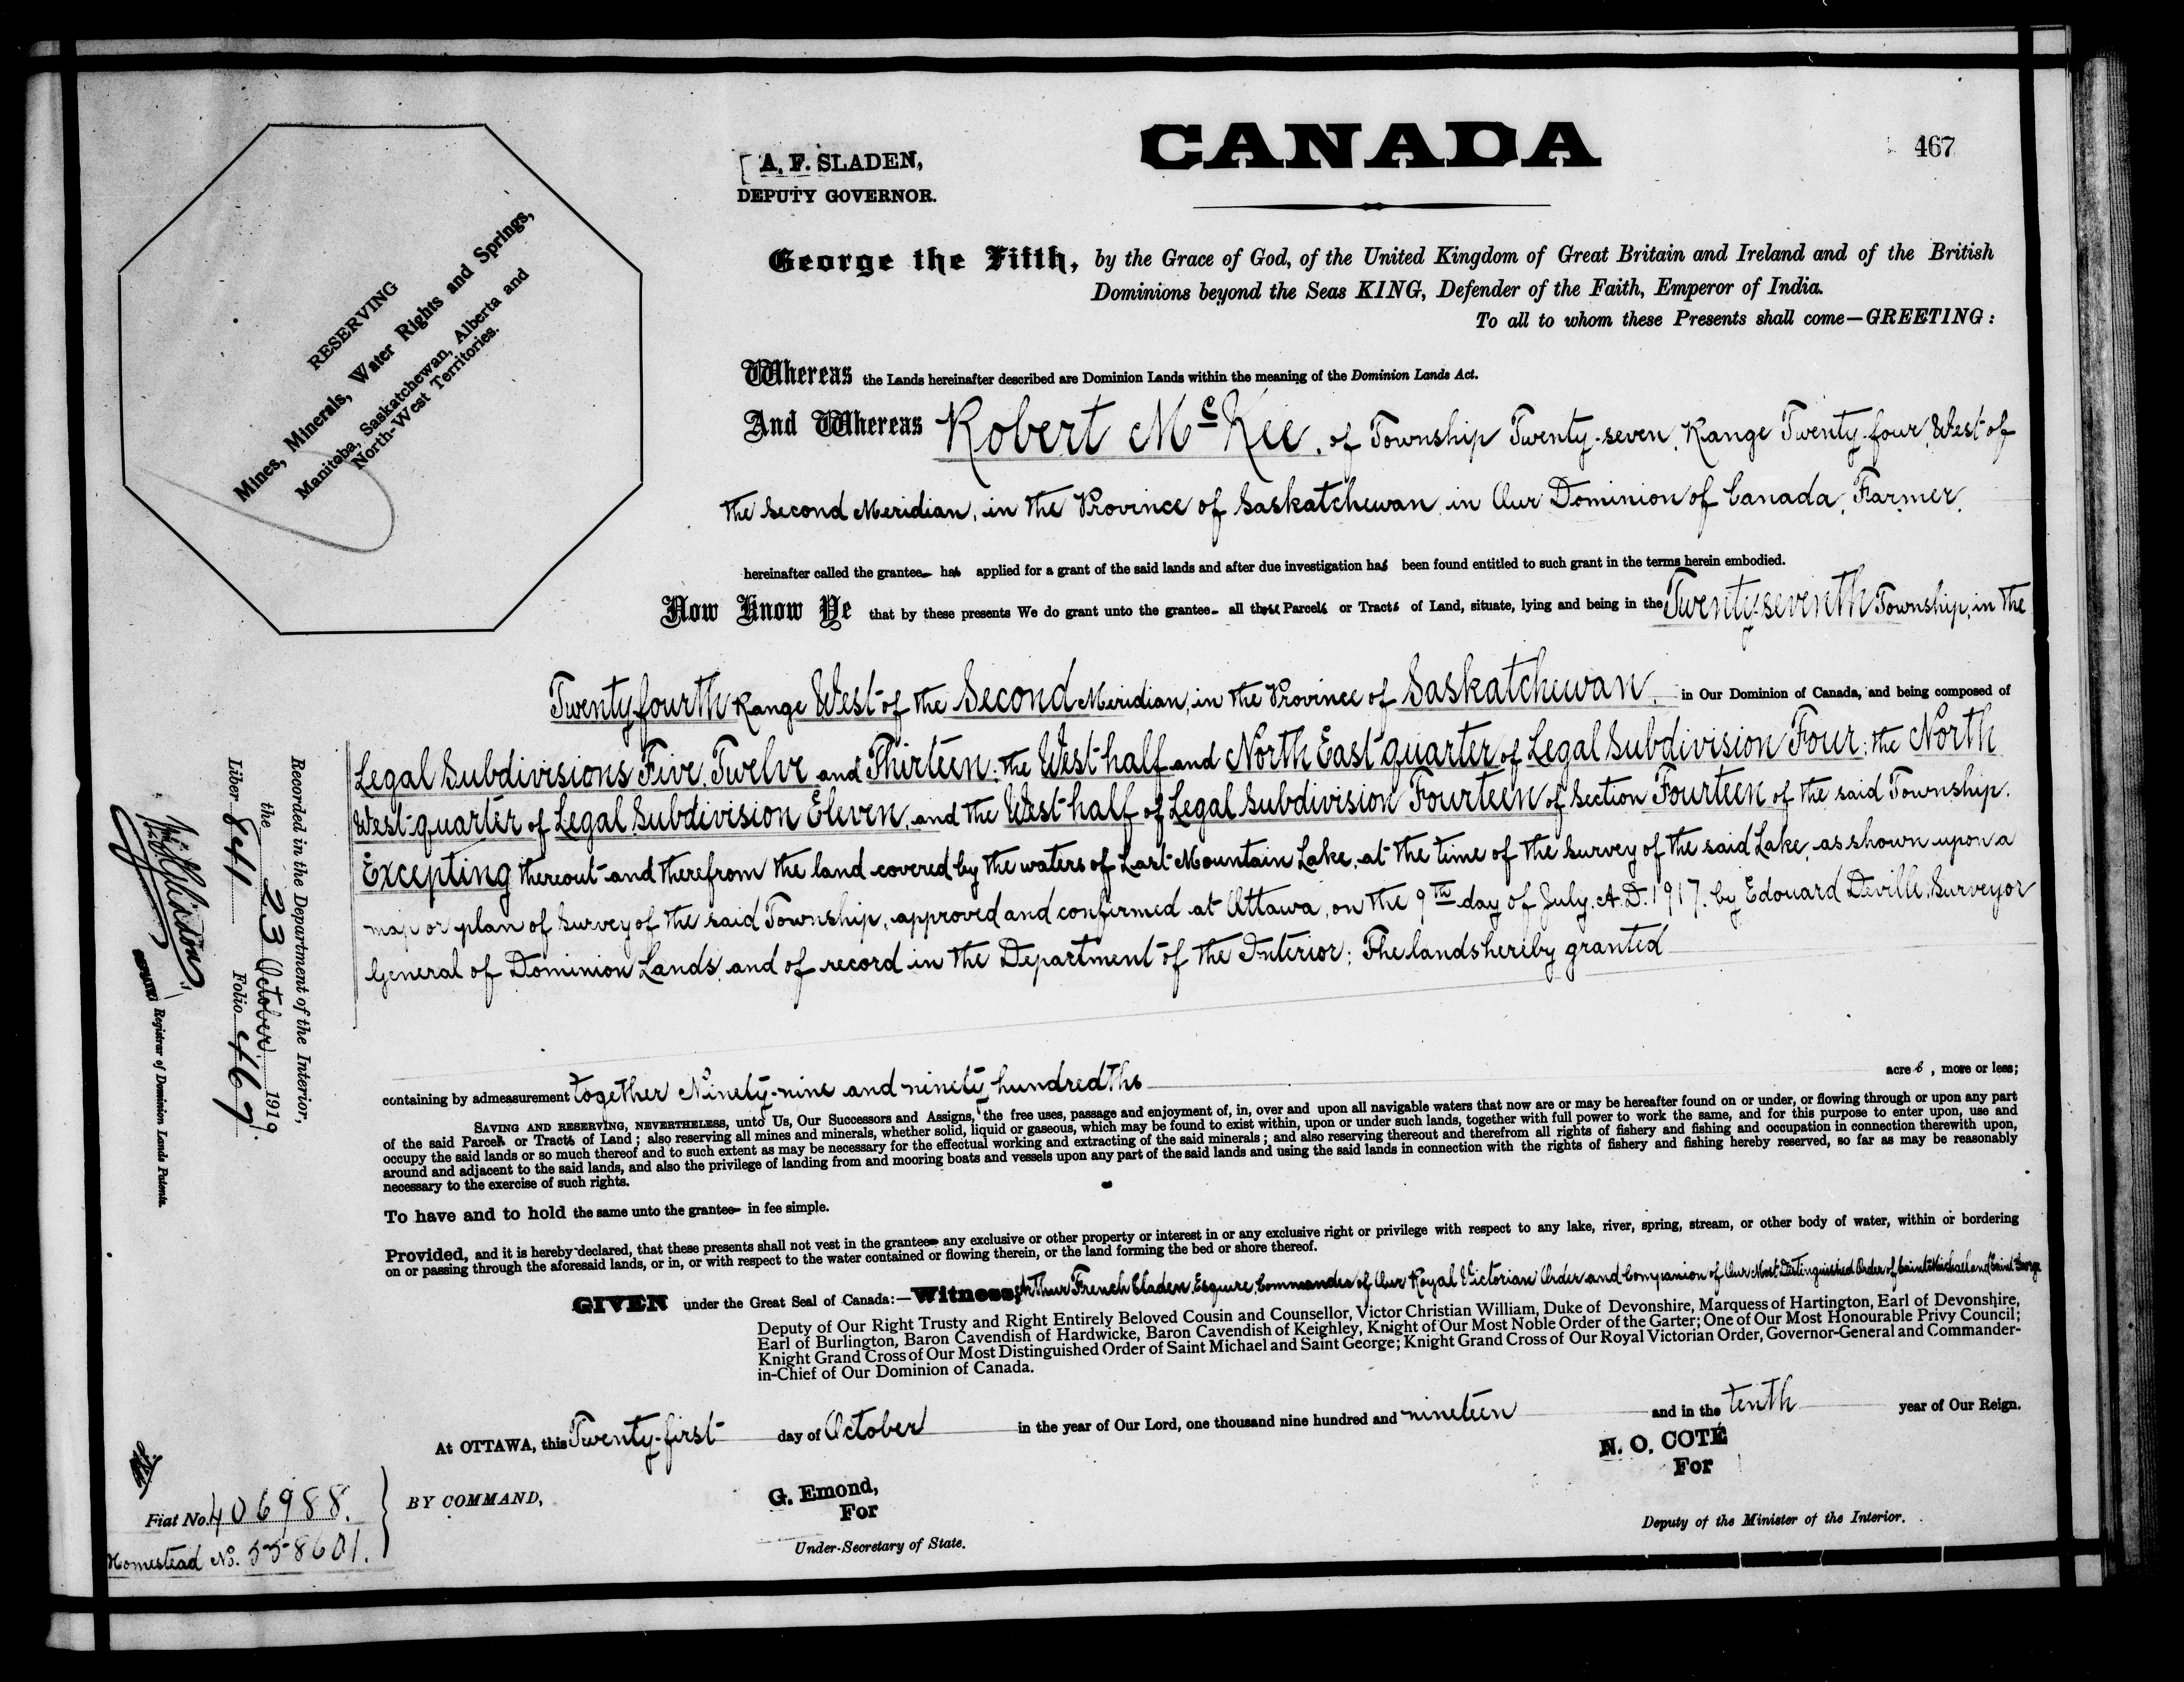 CANADA
467
A. F. SLADEN,
DEPUTY GOVERNOR.
RESERVING
Mines, Minerals, Water Rights and Springs,
Manitoba, Saskatchewan, Alberta and
North-West Territories.
George the Fifth, by the Grace of God, of the United Kingdom of Great Britain and Ireland and of the British
Dominions beyond the Seas KING, Defender of the Faith, Emperor of India.
To all to whom these Presents shall come—GREETING:
Whereas the Lands hereinafter described are Dominion Lands within the meaning of the Dominion Lands Act.
And Whereas Robert McKee, of Township Twenty-seven, Range Twenty-four, West of
the Second Meridian, in the Province of Saskatchewan, in Our Dominion of Canada, Farmer,
hereinafter called the grantee has applied for a grant of the said lands and after due investigation has been found entitled to such grant in the terms herein embodied.
Now Know Ye that by these presents We do grant unto the grantee all those Parcels or Tracts of Land, situate, lying and being in the Twenty-seventh Township, in the
Twenty-fourth Range West of the Second Meridian, in the Province of Saskatchewan, in Our Dominion of Canada, and being composed of
Legal Subdivisions Five, Twelve and Thirteen; the West half and North East quarter of Legal Subdivision Four; the North
West quarter of Legal Subdivision Eleven, and the West half of Legal Subdivision Fourteen of Section Fourteen of the said Township.
Excepting thereout and therefrom the land covered by the waters of Last Mountain Lake, at the time of the survey of the said Lake, as shown upon a
map or plan of survey of the said Township, approved and confirmed at Ottawa, on the 9th day of July, A.D. 1917, by Edouard Deville, Surveyor
General of Dominion Lands, and of record in the Department of the Interior; The lands hereby granted
containing by admeasurement together Ninety-nine and ninety hundredths acres, more or less;
SAVING AND RESERVING, NEVERTHELESS, unto Us, Our Successors and Assigns, the free uses, passage and enjoyment of, in, over and upon all navigable waters that now are or may be hereafter found on or under, or flowing through or upon any part
of the said Parcels or Tracts of Land; also reserving all mines and minerals, whether solid, liquid or gaseous, which may be found to exist within, upon or under such lands, together with full power to work the same, and for this purpose to enter upon, use and
occupy the said lands or so much thereof and to such extent as may be necessary for the effectual working and extracting of the said minerals; and also reserving thereout and therefrom all rights of fishery and fishing and occupation in connection therewith upon,
around and adjacent to the said lands, and also the privilege of landing from and mooring boats and vessels upon any part of the said lands and using the said lands in connection with the rights of fishery and fishing hereby reserved, so far as may be reasonably
necessary to the exercise of such rights.
To have and to hold the same unto the grantee in fee simple.
Provided, and it is hereby declared, that these presents shall not vest in the grantee any exclusive or other property or interest in or any exclusive right or privilege with respect to any lake, river, spring, stream, or other body of water, within or bordering
on or passing through the aforesaid lands, or in, or with respect to the water contained or flowing therein, or the land forming the bed or shore thereof.
GIVEN under the Great Seal of Canada:—Witness, Arthur French Sladen, Esquire, Commander of Our Royal Victorian Order and Companion of Our Most Distinguished Order of Saint Michael and Saint George
Deputy of Our Right Trusty and Right Entirely Beloved Cousin and Counsellor, Victor Christian William, Duke of Devonshire, Marquess of Hartington, Earl of Devonshire,
Earl of Burlington, Baron Cavendish of Hardwicke, Baron Cavendish of Keighley, Knight of Our Most Noble Order of the Garter; One of Our Most Honourable Privy Council;
Knight Grand Cross of Our Most Distinguished Order of Saint Michael and Saint George; Knight Grand Cross of Our Royal Victorian Order, Governor-General and Commander-
in-Chief of Our Dominion of Canada.
At OTTAWA, this Twenty-first day of October in the year of Our Lord, one thousand nine hundred and nineteen and in the tenth year of Our Reign.
N. O. COTÉ
For
Deputy of the Minister of the Interior.
BY COMMAND,
G. Emond,
For
Under-Secretary of State.
Fiat No. 406988.
Homestead No. 558601.
Recorded in the Department of the Interior,
the 23 October 1919.
Liber 841 Folio 467
DEPUTY Registrar of Dominion Lands Patents.